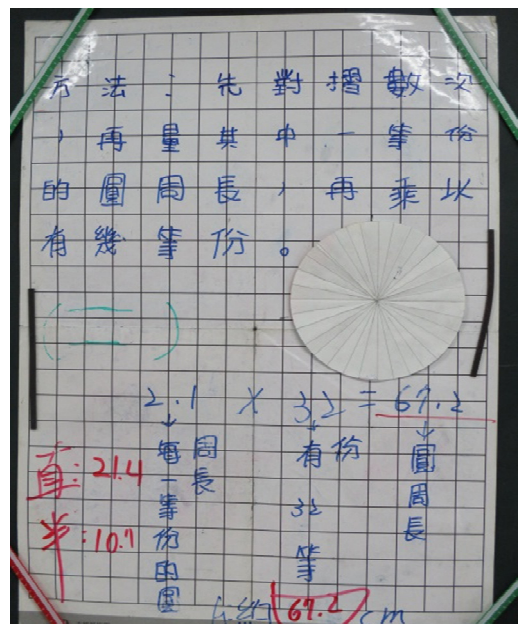 方法：先對摺數次
，再量其中一等份
的圓周長，再乘以
有幾等份。
(二)
2.1 X 32 = 67.2
↓每一等份的圓周長
↓有32等份
↓圓周長
直：21.4
半：10.7
67.2 cm